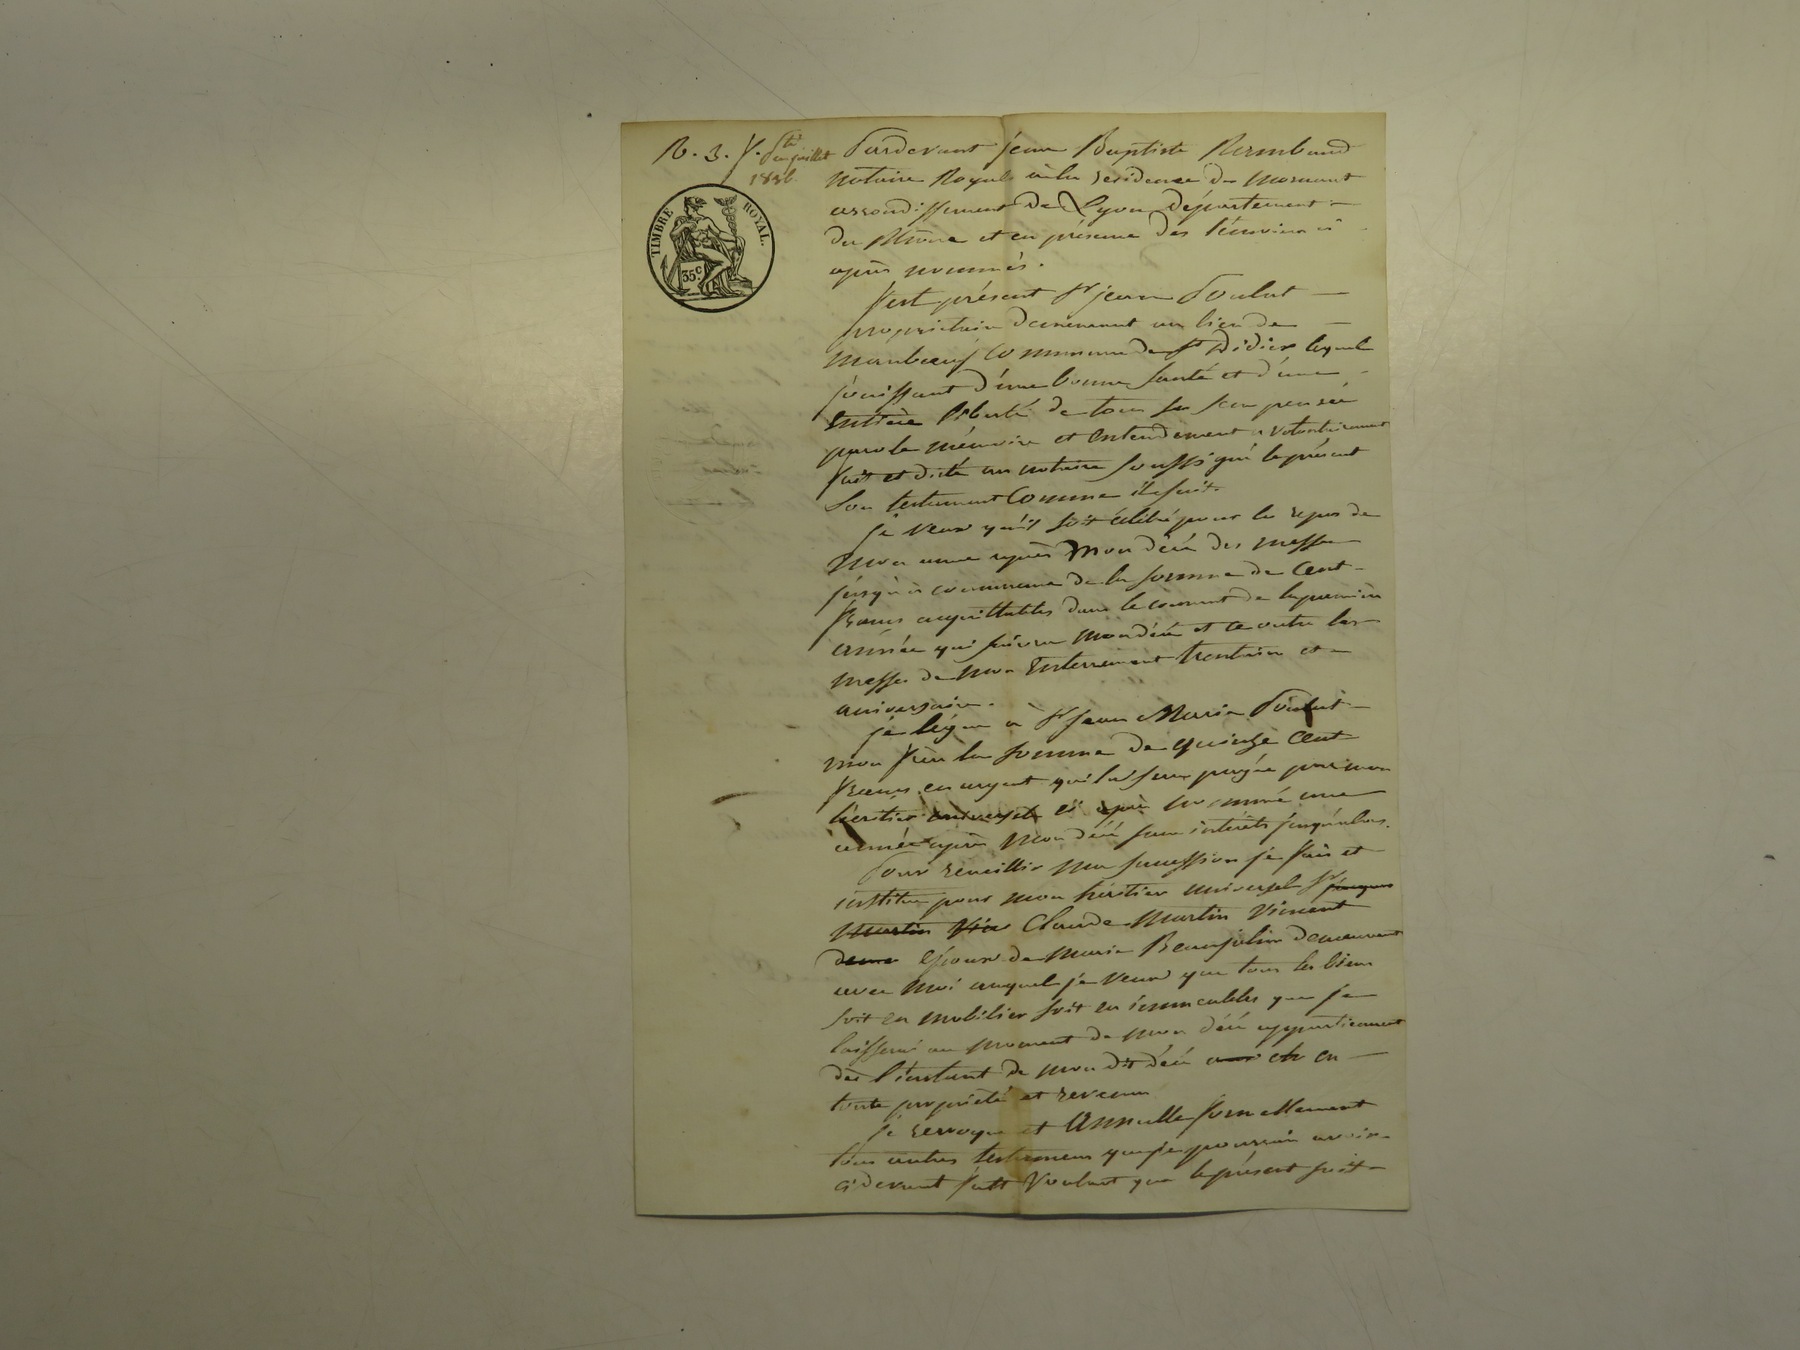 R. 3. f.
juillet
1836
TIMBRE ROYAL.
35c
Pardevant jean Baptiste Rembaud
notaire Royal à la residence de mornant
arrondissement de Lyon département
du Rhône et en présence des témoins ci
après nommés.
fut présent Sr jean Poulat
propriétaire demeurant au lieu de
manbœuf Commune de St Didier lequel
jouissant d'une bonne santé et d'une
entière liberté de tous ses sens pensée
parole mémoire et entendement a volontairement
fait et dicté au notaire soussigné le présent
son testament Comme il suit.
je veux qu'il soit célébré pour le repos de
mon ame après mon décé des messes
jusqu'à concurrence de la somme de Cent
francs acquittables dans le courant de la première
année qui suivra mon décé et ce outre les
messes de mon Enterrement trentain et
aniversaire.
je légue à Sr jean Marie Poulat
mon frère la somme de quinze Cent
francs en argent qui lui sera payée par mon
héritier universel ci après nommé une
année après mon décé sans intérêts jusqu'alors.
Pour recueillir ma succession je fais et
institue pour mon héritier universel Sr jacques
martin Claude martin Vincent
époux de marie Beaujolin demeurant
avec moi auquel je veux que tous les biens
soit en mobilier soit en immeubles que je
laisserai au moment de mon décé appartiennent
dès l'instant de mon dit décé en
toute propriété et revenu
je revoque et Annulle formellement
tous autres testamens que je pourrais avoir
cidevant fait Voulant que le présent soit